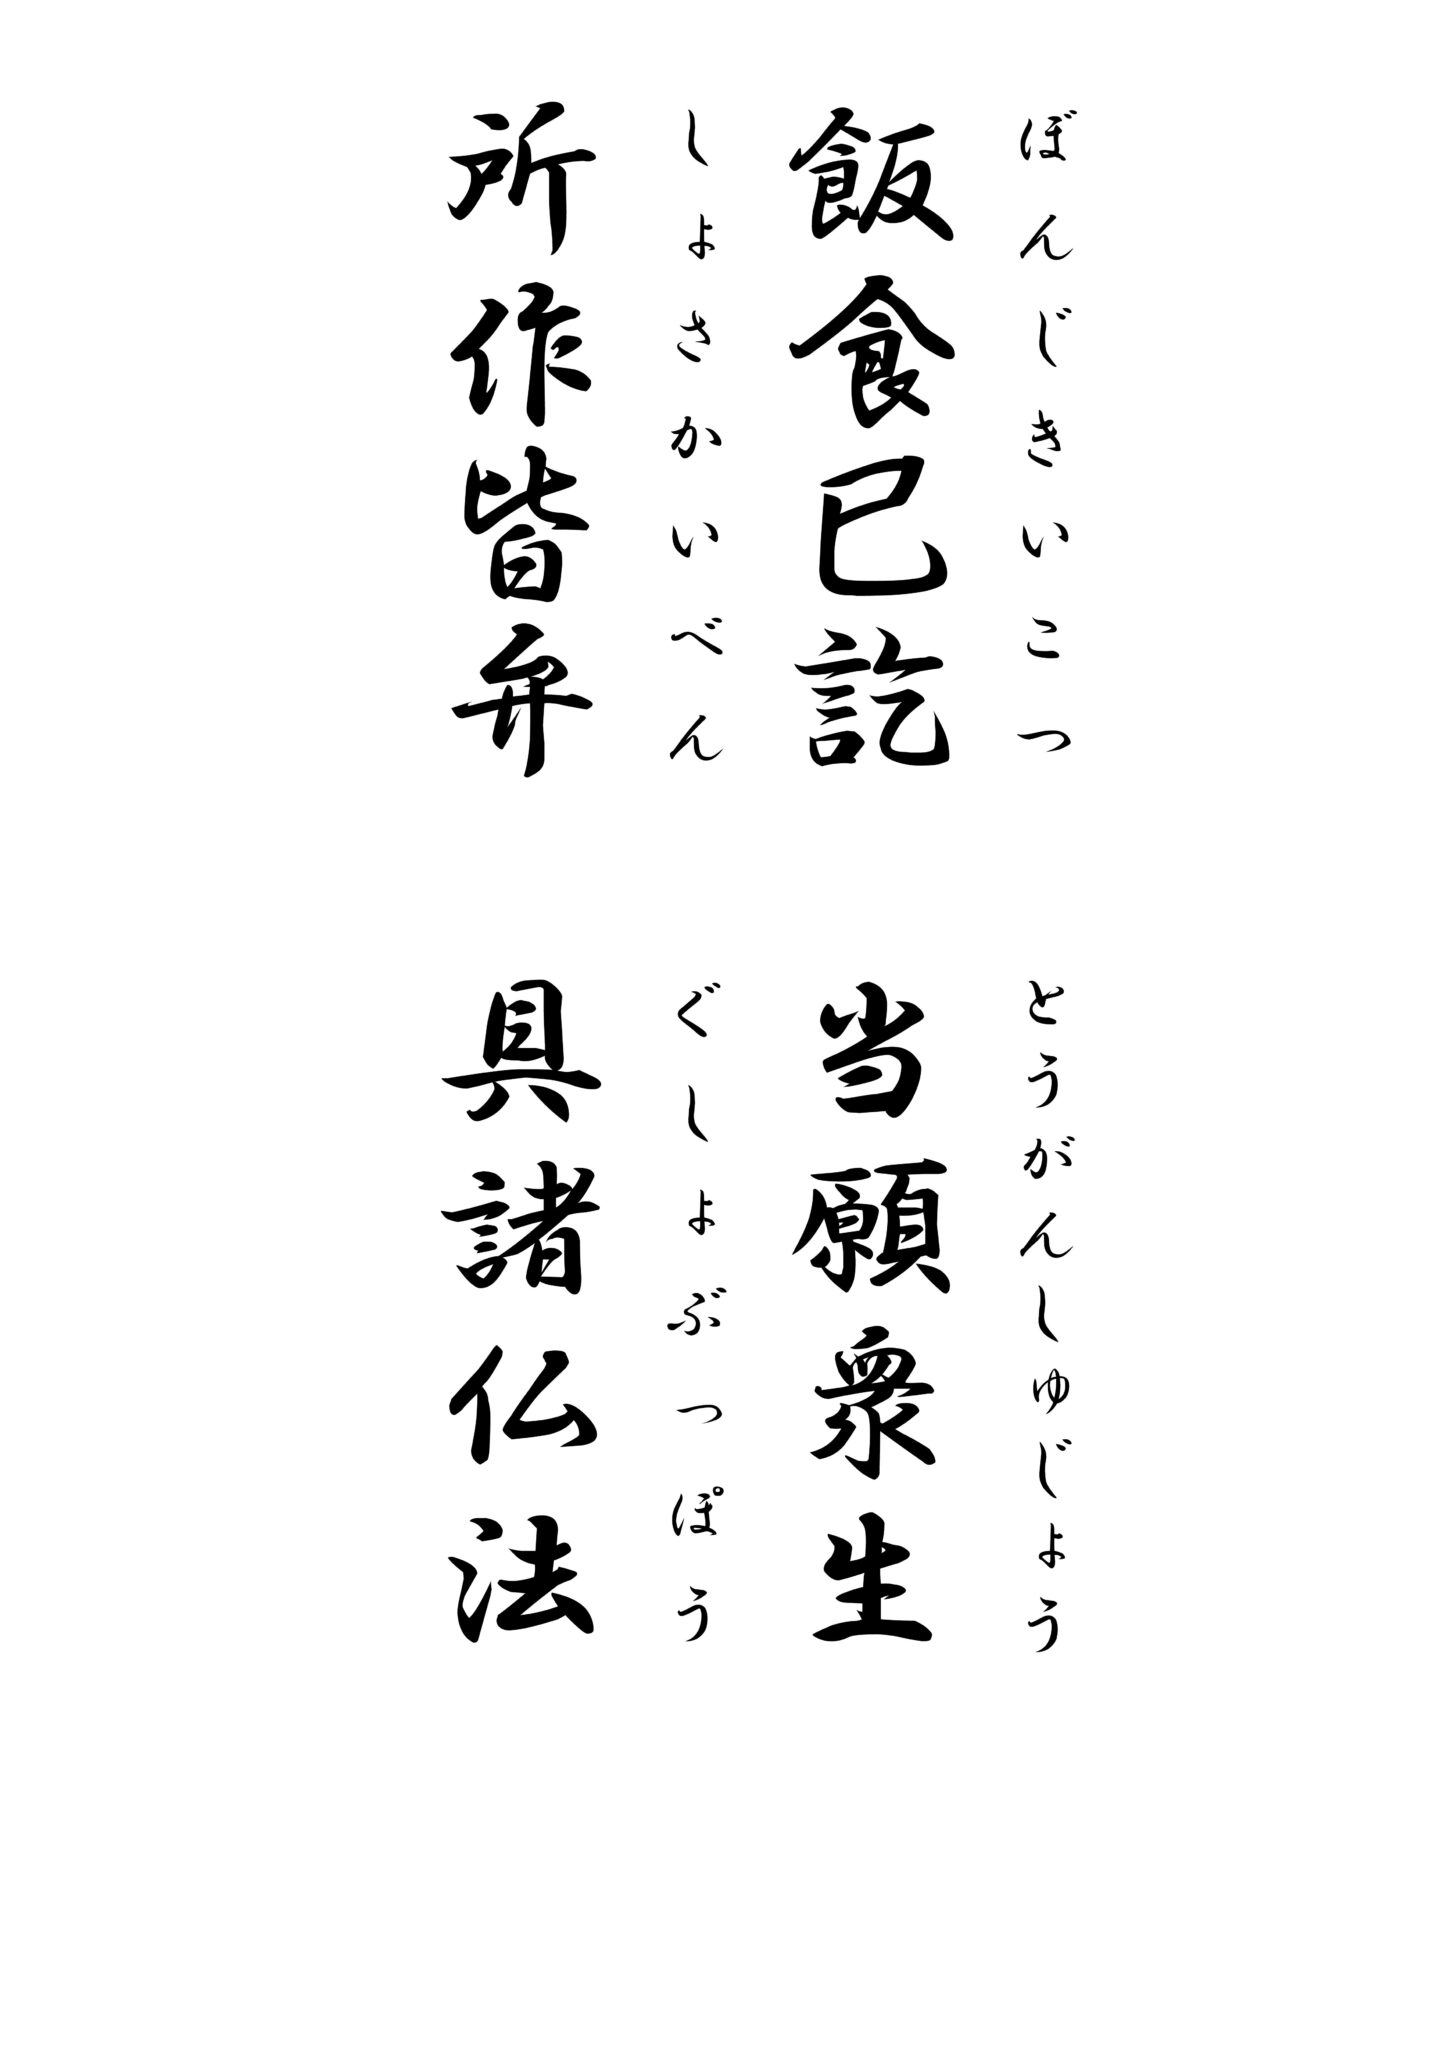 ぼんじきいこつ　とうがんしゅじょう
飯食已訖　当願衆生
しょさかいべん　ぐしょぶっぽう
所作皆弁　具諸仏法